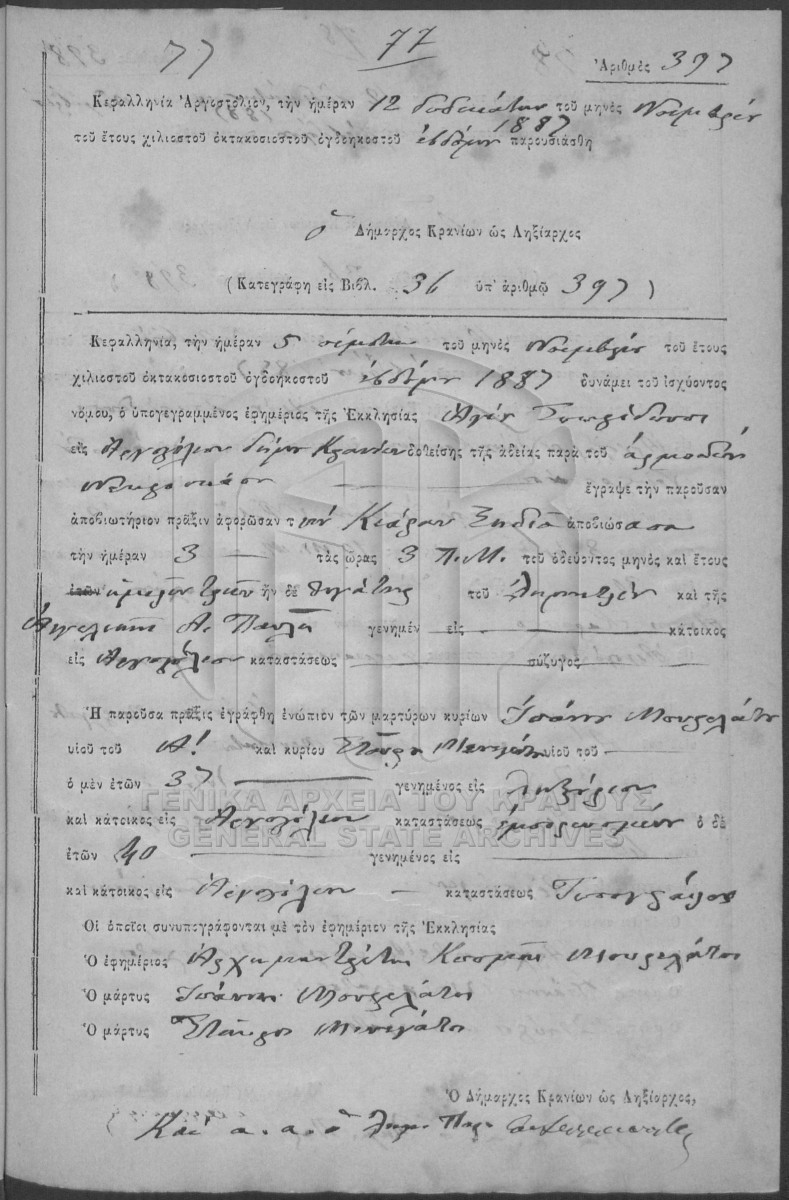 77 77
Ἀριθμὸς 397
Κεφαλληνία Ἀργοστόλιον, τὴν ἡμέραν 12 δωδεκάτην τοῦ μηνὸς Νοεμβρίου
τοῦ ἔτους χιλιοστοῦ ὀκτακοσιοστοῦ ὀγδοηκοστοῦ ἑβδόμου 1887 παρουσιάσθη
ὁ Δήμαρχος Κρανίων ὡς Ληξίαρχος
(Κατεγράφη εἰς Βιβλ. 36 ὑπ' ἀριθμῷ 397)
Κεφαλληνία, τὴν ἡμέραν 5 πέμπτην τοῦ μηνὸς Νοεμβρίου τοῦ ἔτους
χιλιοστοῦ ὀκτακοσιοστοῦ ὀγδοηκοστοῦ ἑβδόμου 1887 δυνάμει τοῦ ἰσχύοντος
νόμου, ὁ ὑπογεγραμμένος ἐφημέριος τῆς Ἐκκλησίας Ἁγίου
εἰς Ἀργοστόλιον δήμου Κρανίων δοθείσης τῆς ἀδείας παρὰ τοῦ ἁρμοδίου
ἔγραψε τὴν παροῦσαν
ἀποβιωτήριον πρᾶξιν ἀφορῶσαν τὴν Κιάραν ἀποβιώσασα
τὴν ἡμέραν 3 — τὰς ὥρας 3 Π.Μ. τοῦ ὁδεύοντος μηνὸς καὶ ἔτους
ἐτῶν τριῶν ἦν δὲ θυγάτηρ τοῦ Δημητρίου καὶ τῆς
Ἀγγελικῆς Α. Παυλῆ γενημέν εἰς κάτοικος
εἰς Ἀργοστόλιον καταστάσεως σύζυγος
Ἡ παροῦσα πρᾶξις ἐγράφθη ἐνώπιον τῶν μαρτύρων κυρίων Ἰωάννου Μουρελάτου
υἱοῦ τοῦ Α! καὶ κυρίου Σταύρου Μενεγάτου υἱοῦ τοῦ
ὁ μὲν ἐτῶν 37 γενημένος εἰς Ληξούριον
καὶ κάτοικος εἰς Ἀργοστόλιον καταστάσεως ἐμπορευομένου ὁ δὲ
ἐτῶν 40 γενημένος εἰς
καὶ κάτοικος εἰς Ἀργοστόλιον — καταστάσεως Τυπογράφος
Οἱ ὁποῖοι συνυπογράφονται μὲ τὸν ἐφημέριον τῆς Ἐκκλησίας
Ὁ ἐφημέριος Ἀρχιμανδρίτης Κοσμᾶς Μουρελάτος
Ὁ μάρτυς Ἰωάννης Μουρελάτος
Ὁ μάρτυς Σταῦρος Μενεγάτος
Ὁ Δήμαρχος Κρανίων ὡς Ληξίαρχος,
Κατ' α. α. ὁ Δημ. Παρ.
ΓΕΝΙΚΑ ΑΡΧΕΙΑ ΤΟΥ ΚΡΑΤΟΥΣ
GENERAL STATE ARCHIVES